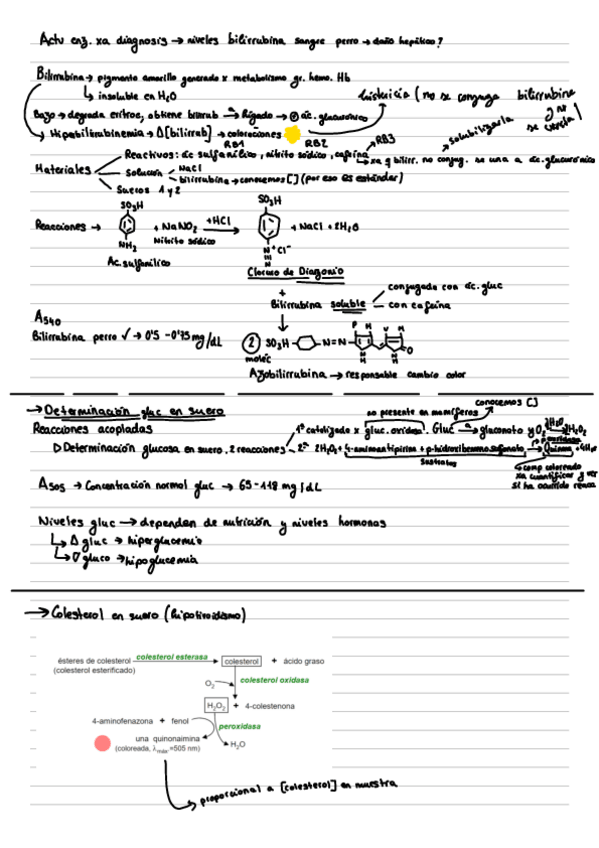 Actu enz. xa diagnosis → niveles bilirrubina sangre perro → daño hepático?
Bilirrubina → pigmento amarillo generado x metabolismo gr. hemo. Hb
↳ insoluble en H₂O
ictericia (no se conjuga bilirrubina y no se excreta)
Bazo → degrada eritroc, obtiene bilirrub → Hígado → ⊕ ác. glucurónico
↳ Hiperbilirrubinemia → Δ[bilirrub] → coloraciones
RB1 RB2 RB3 solubilizarla
Materiales
Reactivos: ác sulfanílico, nitrito sódico, cafeína → xa q bilirr. no conjug. se una a ác. glucurónico
Solución
NaCl
bilirrubina → conocemos [] (por eso es estándar)
Sueros 1 y 2
Reacciones →
SO₃H
NH₂
Ac. sulfanílico
+ NaNO₂
Nitrito sódico
+HCl
SO₃H
N⁺Cl⁻
N
+ NaCl + 2H₂O
Cloruro de Diazonio
+
Bilirrubina soluble
conjugada con ác. gluc
con cafeína
A₅₄₀
Bilirrubina perro ✓ → 0'5 - 0'75 mg/dL
2 moléc
SO₃H N=N
Azobilirrubina → responsable cambio color
→ Determinación gluc en suero
Reacciones acopladas
▷ Determinación glucosa en suero. 2 reacciones
no presente en mamíferos
conocemos []
1ª catalizada x gluc. oxidasa. Gluc → gluconato y O₂ H₂O₂
2ª 2H₂O₂ + 4-aminoantipirina + p-hidroxibenceno sulfonato → Quinona + 4H₂O
peroxidasa
Sustratos
↳ comp coloreado xa cuantificar y ver si ha ocurrido reacc
A₅₀₅ → Concentración normal gluc → 65 - 118 mg/dL
Niveles gluc → dependen de nutrición y niveles hormonas
↳ Δ gluc → hiperglucemia
↳ ∇ gluco → hipoglucemia
→ Colesterol en suero (hipotiroidismo)
ésteres de colesterol colesterol esterasa colesterol + ácido graso
(colesterol esterificado)
O₂ colesterol oxidasa
H₂O₂ + 4-colestenona
4-aminofenazona + fenol
peroxidasa
una quinonaimina H₂O
(coloreada, λmáx.=505 nm)
proporcional a [colesterol] en muestra